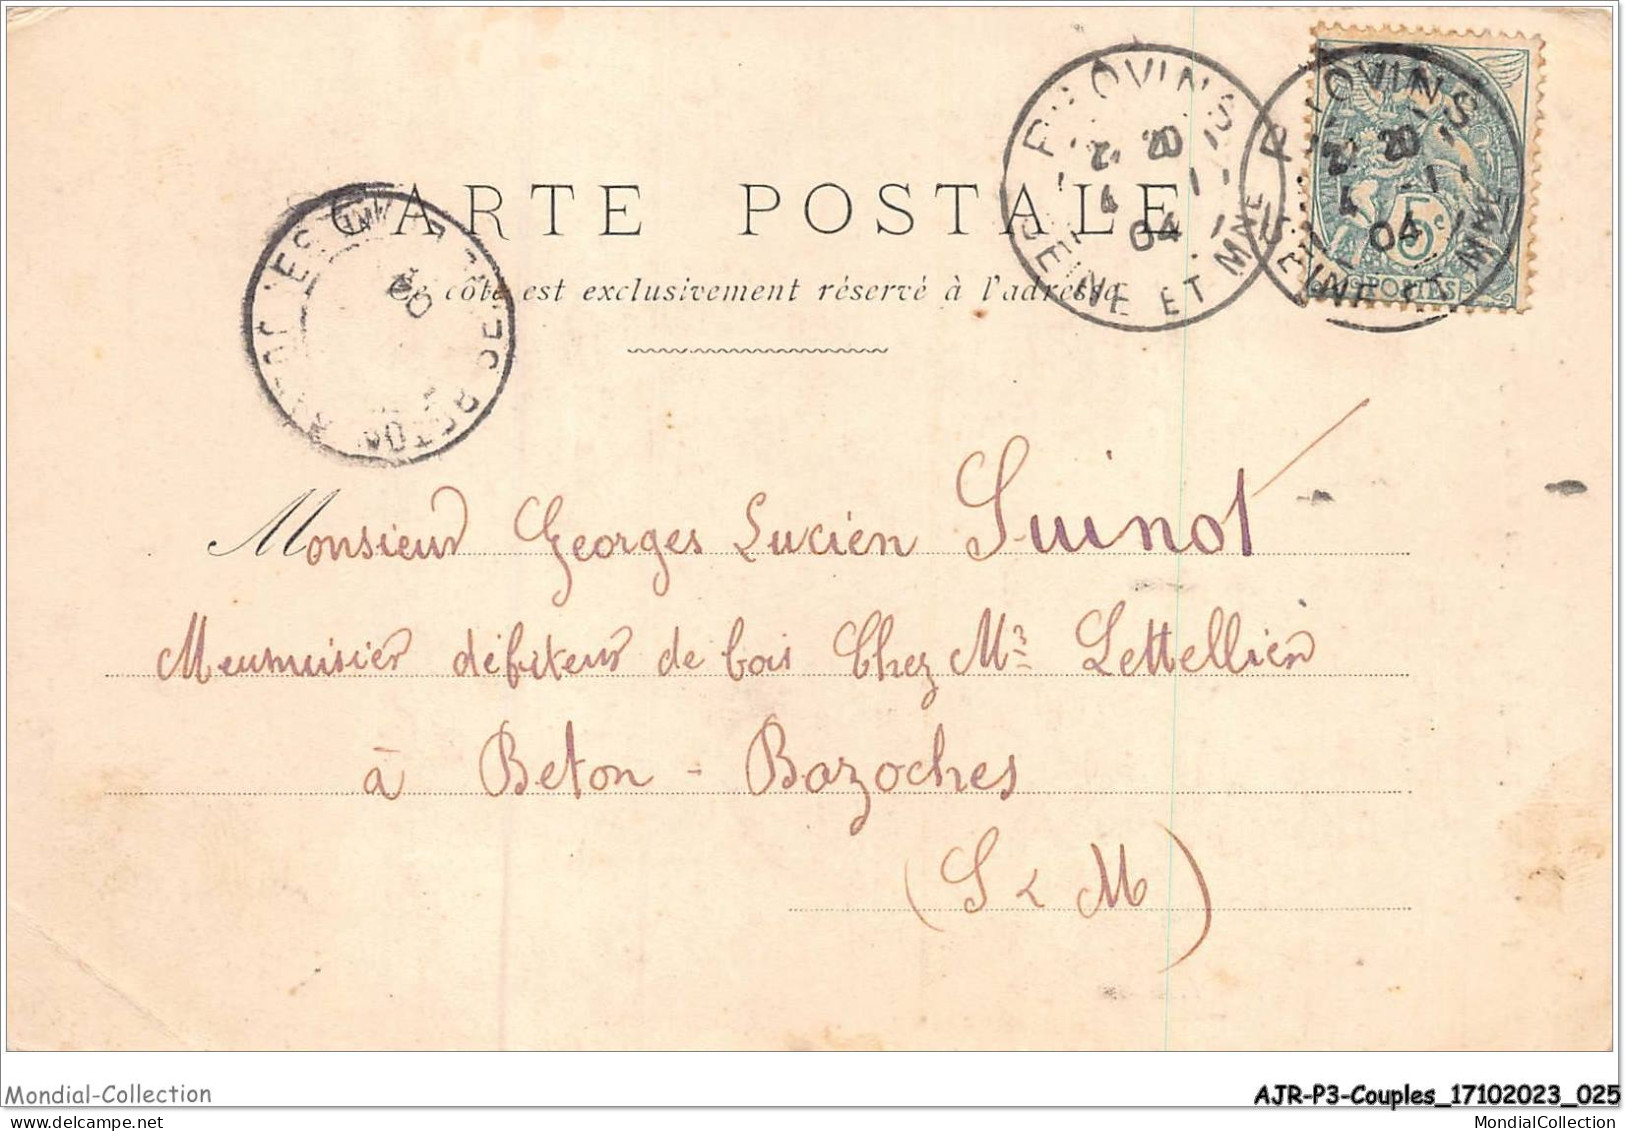 PROVINS
2 20
4 1
04
SEINE ET MNE
PROVINS
2 20
4 1
04
SEINE ET MNE
5c
POSTES
CARTE POSTALE
Ce côté est exclusivement réservé à l'adresse
BETON
04
Monsieur Georges Lucien Suinot
Meunuisier débiteur de bois Chez Mr Lettellier
à Beton - Bazoches
(S & M)
Mondial-Collection
AJR-P3-Couples_17102023_025
MondialCollection